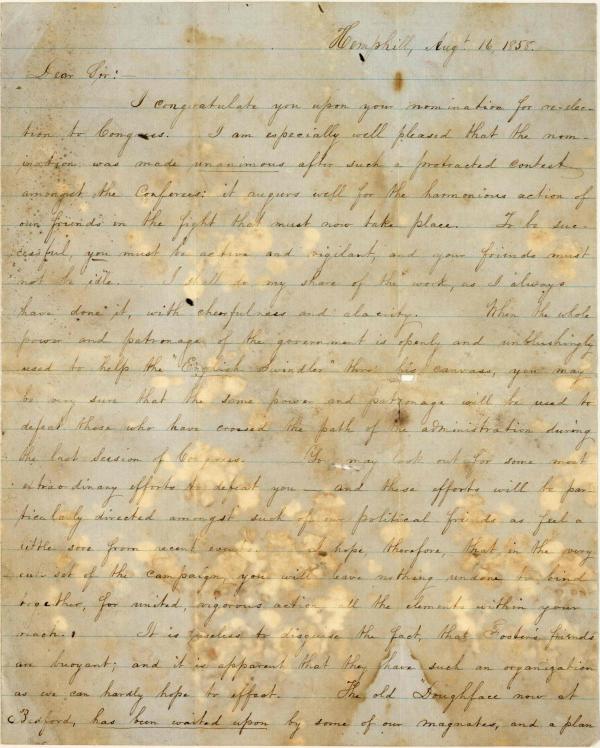 Hemphill, Augt 16, 1858.
Dear Sir:—
I congratulate you upon your nomination for re-elec-
tion to Congress. I am especially well pleased that the nom-
ination was made unanimous after such a protracted contest
amongst the Conferees: it augurs well for the harmonious action of
our friends in the fight that must now take place. To be suc-
cessful, you must be active and vigilant, and your friends must
not be idle. I shall do my share of the work, as I always
have done it, with cheerfulness and alacrity. When the whole
power and patronage of the government is openly and unblushingly
used to help the "English Swindler" thro' his canvass, you may
be very sure that the same power and patronage will be used to
defeat those who have crossed the path of the administration during
the last Session of Congress. You may look out for some most
extraordinary efforts to defeat you — and these efforts will be par-
ticularly directed amongst such of our political friends as feel a
little sore from recent events. I hope, therefore, that in the very
outset of the campaign, you will leave nothing undone to bind
together, for united, vigorous action, all the elements within your
reach. It is useless to disguise the fact, that friends
are buoyant; and it is apparent that they have such an organization
as we can hardly hope to effect. The old Doughface now at
Bedford, has been waited upon by some of our magnates, and a plan